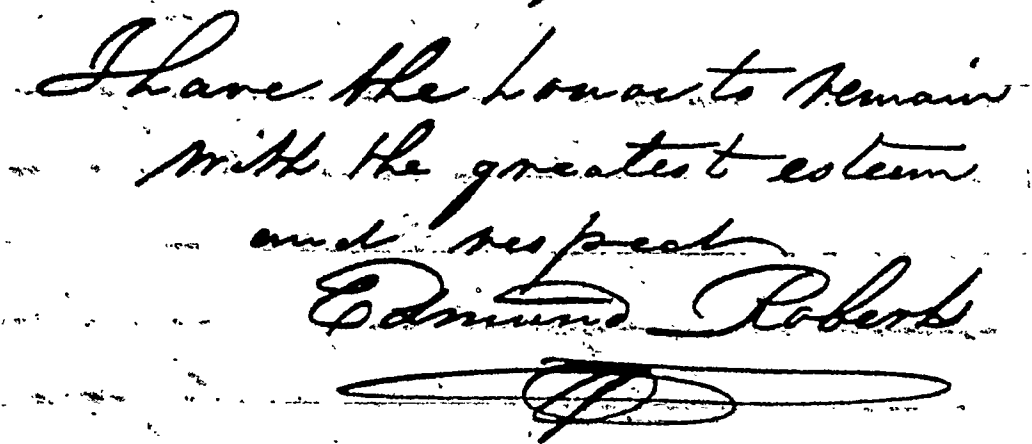 I have the honor to remain
with the greatest esteem
and respect
Edmund Roberts